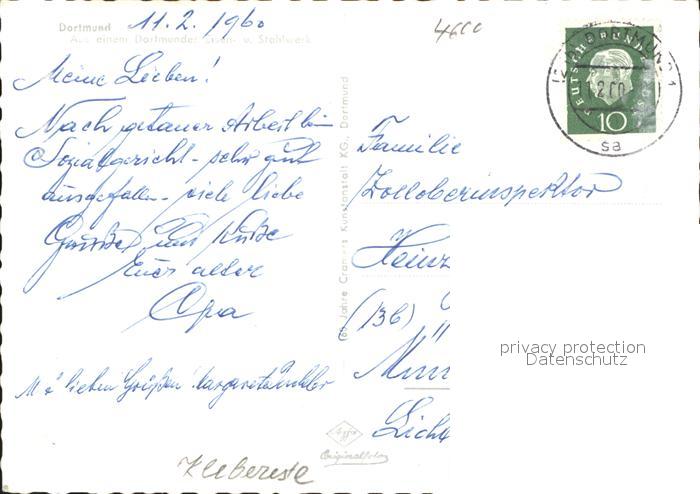 Dortmund 11.2.1960
Aus einem Dortmunder Eisen- u. Stahlwerk
4600
Meine Lieben!
Nach getaner Arbeit beim
Sozialgericht - sehr gut
ausgefallen - viele liebe
Grüße und Küße
Euer alter
Opa
Mit lieben Grüßen
Klebereste
160 Jahre Cramers Kunstanstalt KG., Dortmund
Agfa
Originalfoto
DEUTSCHE BUNDESPOST
10
DORTMUND 1
sa
Familie
Zolloberinspektor
Heinz
(13b)
Mün
Lich
privacy protection
Datenschutz